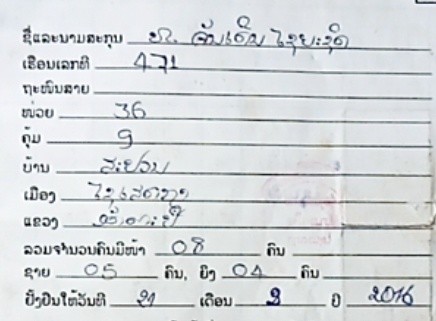 ຊື່ແລະນາມສະກຸນ ທ. ຈັນເດັນ ໄຊຍະຊິດ
ເຮືອນເລກທີ 471
ຖະໜົນສາຍ
ໜ່ວຍ 36
ຄຸ້ມ 9
ບ້ານ
ເມືອງ ໄຊເສດຖາ
ແຂວງ
ລວມຈຳນວນຄົນມີໜ້າ 08 ຄົນ
ຊາຍ 05 ຄົນ, ຍິງ 04 ຄົນ
ຢັ້ງຢືນໃຫ້ວັນທີ 21 ເດືອນ 2 ປີ 2016